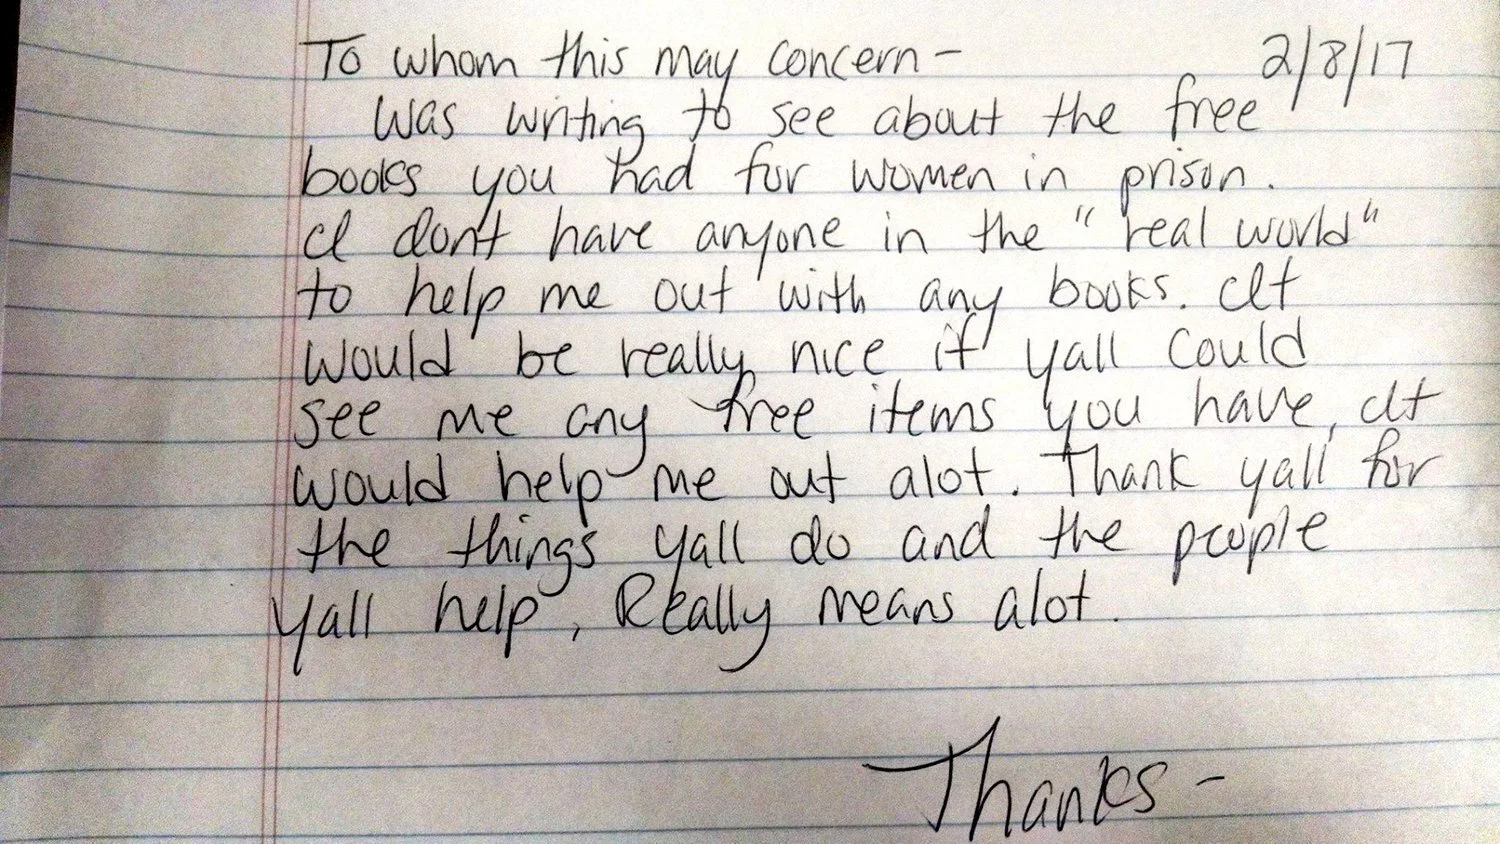 To whom this may concern - 2/8/17
Was writing to see about the free
books you had for women in prison.
I dont have anyone in the "real world"
to help me out with any books. It
would be really nice if yall could
see me any free items you have, It
would help me out alot. Thank yall for
the things yall do and the people
yall help, Really means alot.
Thanks -